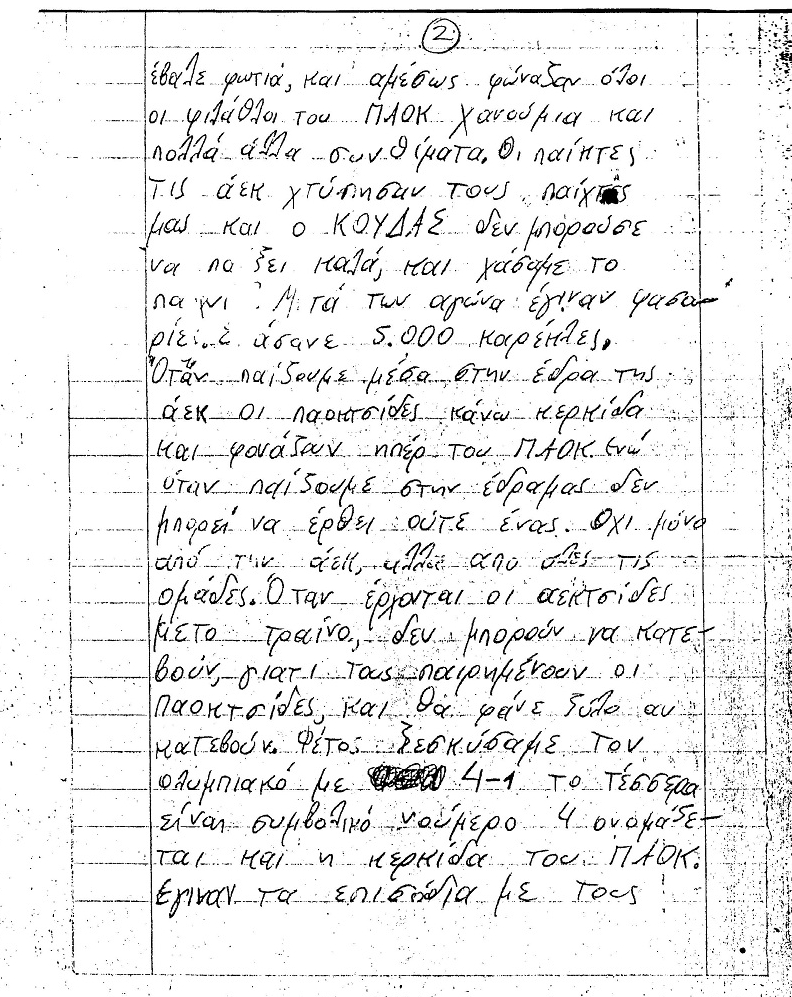 2
έβαλε φωτιά, και αμέσως φώναζαν όλοι
οι φιλάθλοι του ΠΑΟΚ χανούμια και
πολλά άλλα συνθίματα. Οι παίκτες
τις άεκ χτύπησαν τους παίχτες
μας και ο ΚΟΥΔΑΣ δεν μπορούσε
να παίξει καλά, και χάσαμε το
Μετά των αγώνα έγιναν φασα-
5.000 καρέκλες.
Όταν παίζουμε μέσα στην έδρα της
άεκ οι παοκτσίδες κάνω κερκίδα
και φονάζουν ηπέρ του ΠΑΟΚ. Ενώ
όταν παίζουμε στην έδραμας δεν
μπορεί να έρθει ούτε ένας. Όχι μόνο
από την άεκ, αλλα απο όλες τις
ομάδες. Όταν έρχονται οι αεκτσίδες
μετο τραίνο, δεν μπορούν να κατε-
βούν, γιατι τους παιρημένουν οι
Παοκτσίδες, και θα φάνε ξύλο αν
κατεβούν. Φέτος ξεσκύσαμε τον
ολυμπιακό με 4-1 το τέσσερα
είναι συμβολικό νούμερο 4 ονομάζε-
ται και η κερκίδα του ΠΑΟΚ.
Έγιναν τα επισόδια με τους